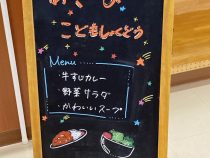 こどもしょくどう
Menu
・牛すじカレー
・野菜サラダ
・かわいいスープ